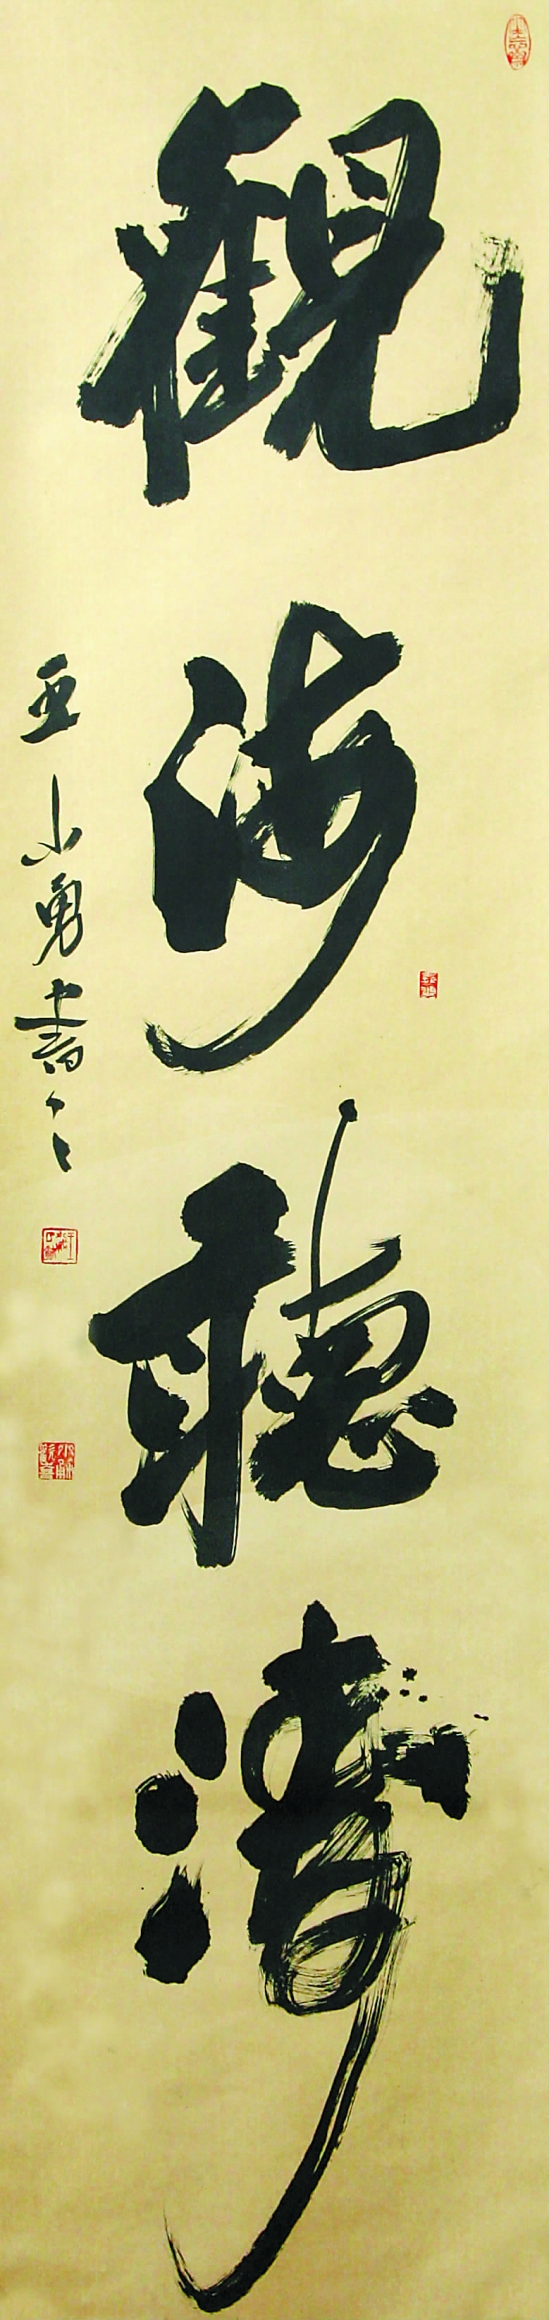 觀海聽濤
王小勇書